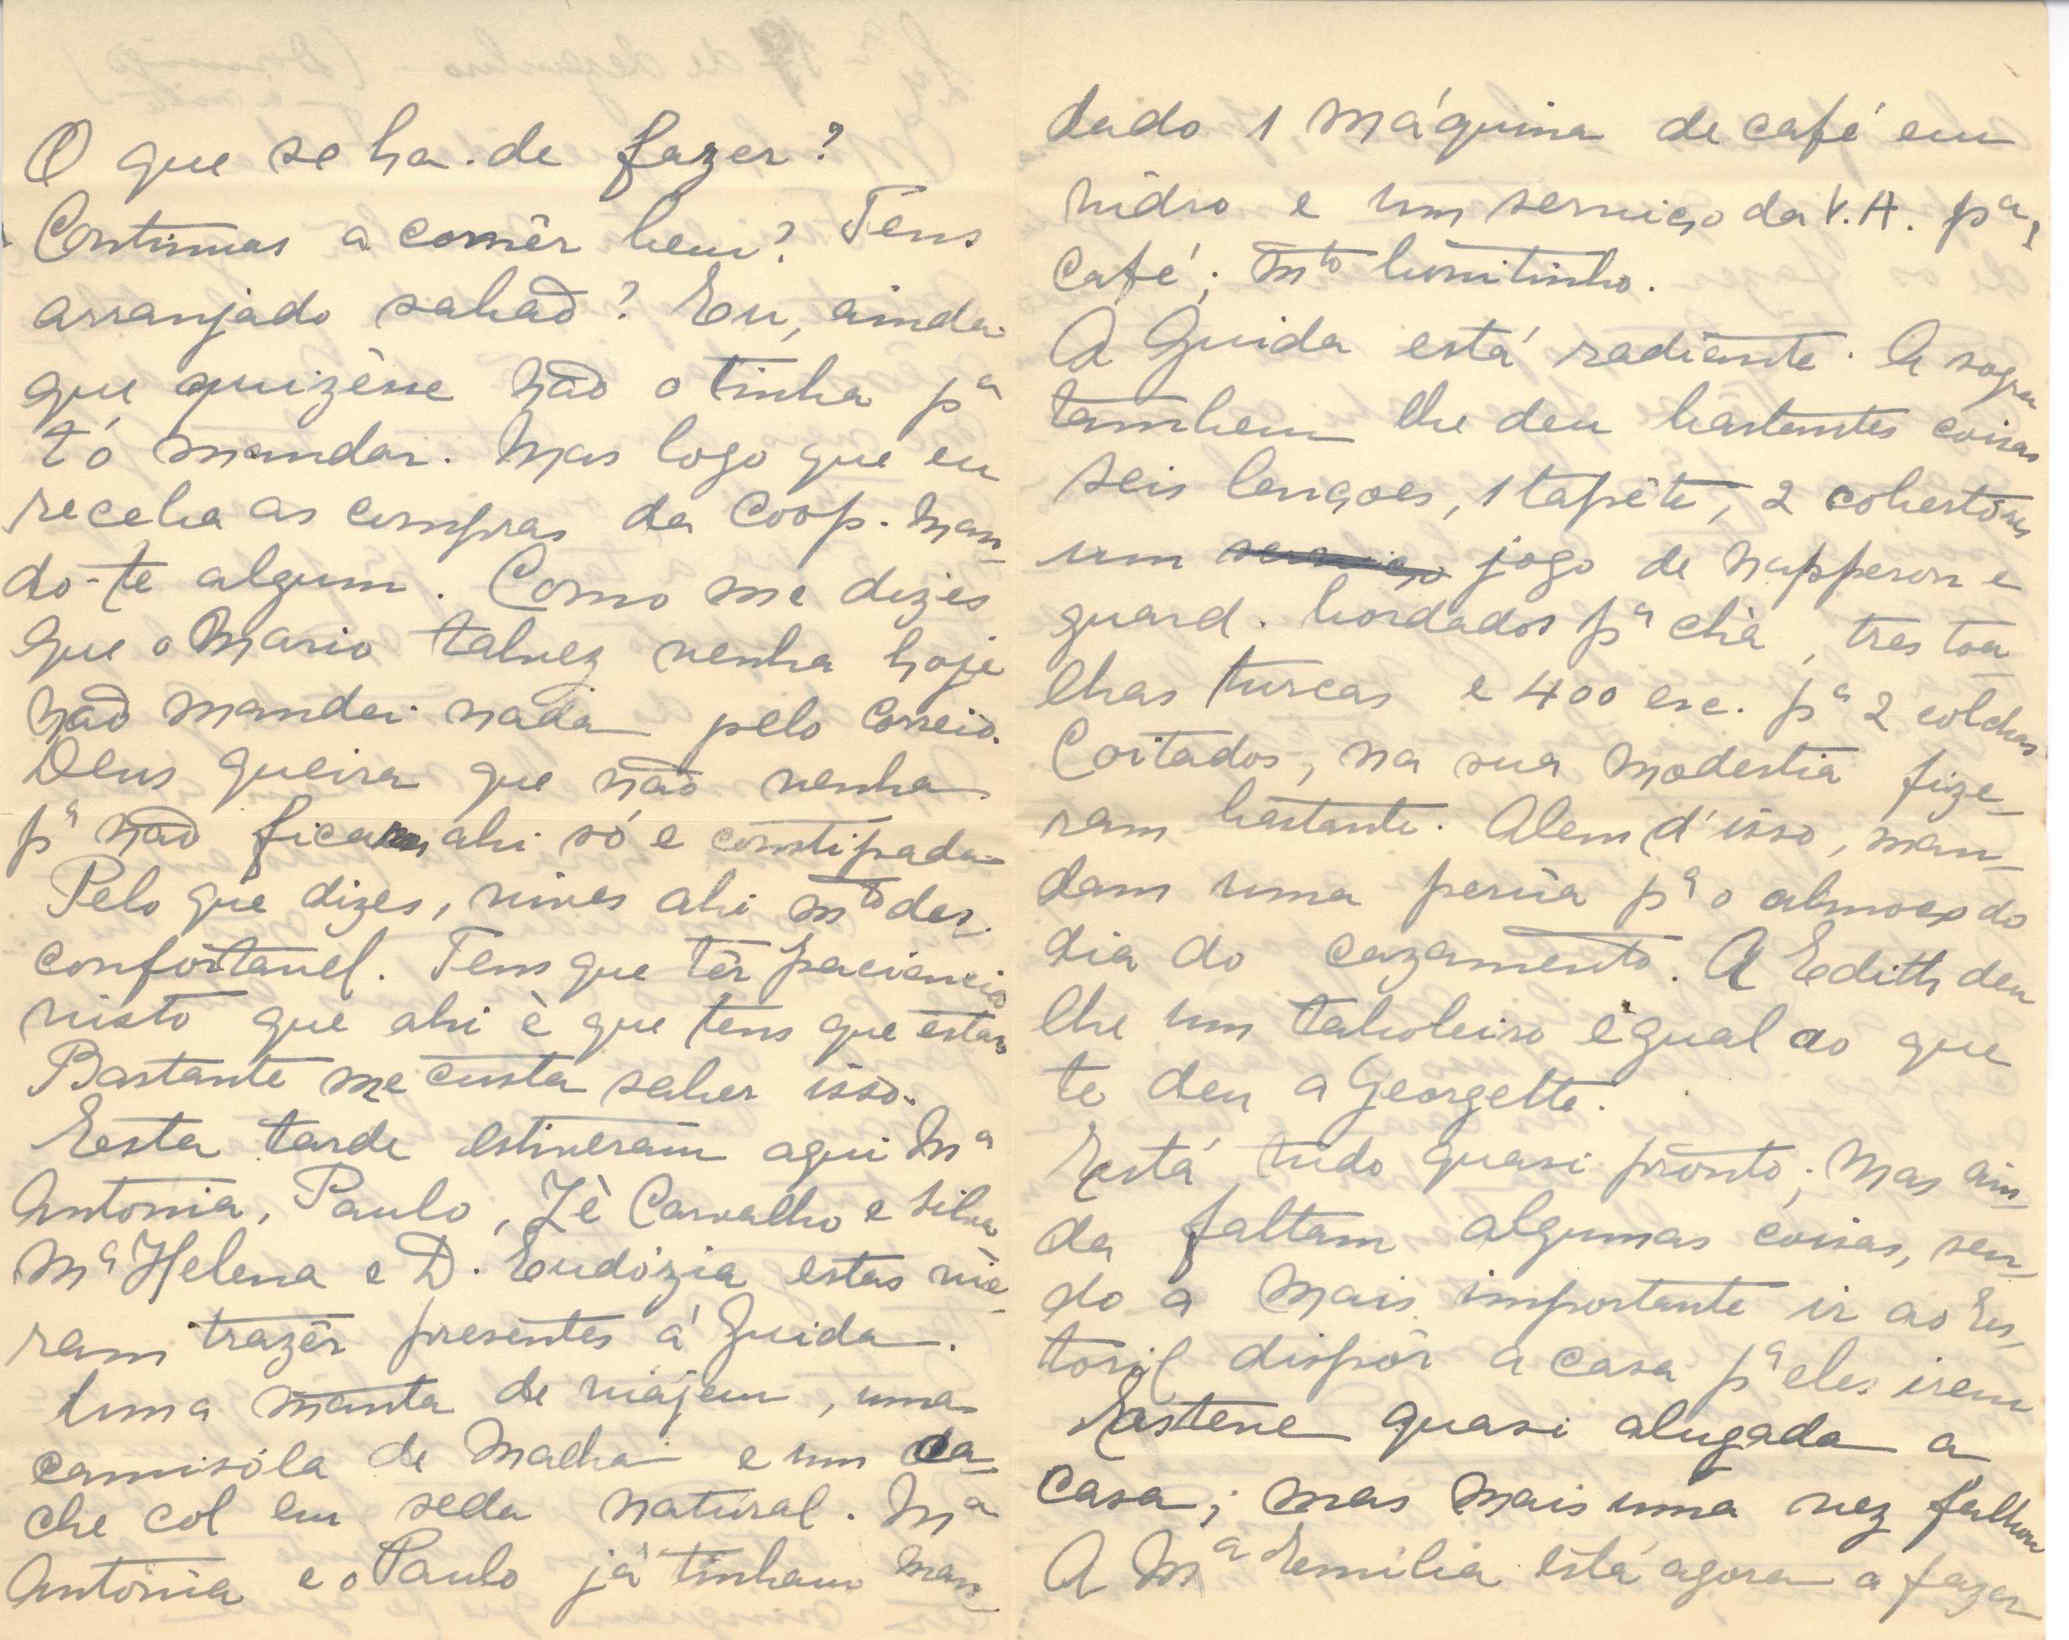 O que se ha-de fazer?
Continuas a comêr bem? Tens
arranjado sabaõ? Eu, ainda
que quizésse naõ o tinha pª
t'ó mandar. Mas logo que eu
receba as compras da Coop. man-
do-te algum. Como me dizes
que o Mario talvez venha hoje
naõ mandei nada pelo correio.
Deus queira que naõ venha
pª naõ ficares ahi só e constipada
Pelo que dizes, vives ahi mto des-
confortavel. Tens que têr paciencia
visto que ahi è que tens que estar
Bastante me custa saber isso.
Esta tarde estiveram aqui Mª
Antonia, Paulo, Zè Carvalho e Silva
Mª Helena e D. Eudózia estas viè-
ram trazêr presentes á Guida.
Uma manta de viájem, uma
camisóla de malha e um ca-
che col em seda natural. Mª
Antónia e o Paulo já tinham man-
dado 1 máquina de café em
vidro e um serviço da V.A. pª
café; mto bonitinho.
A Guida está radiante. A sogra
tambem lhe deu bastantes coisas
seis lençoes, 1 tapête, 2 cobertores
um serviço jogo de napperon e
guard. bordados pª chà, tres toa
lhas turcas e 400 esc. pª 2 colchas
Coitados, na sua modestia fize-
ram bastante. Alem d'isso, man-
dam uma perúa pª o almoço do
dia do cazamento. A Edith deu
lhe um taboleiro egual ao que
te deu a Georgette.
Está tudo quasi pronto; mas ain-
da faltam algumas coisas, sen-
do a mais importante ir ao Es-
toril dispôr a casa pª eles irem
Esteve quasi alugada a
casa; mas mais uma vez falhou
A Mª Emilia está agora a fazer